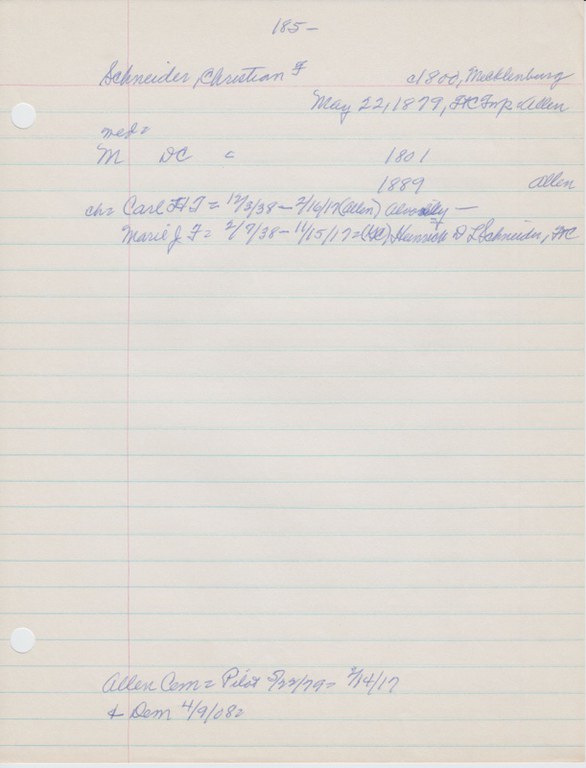 185-
Schneider, Christian F
c1800, Mecklenburg
May 22, 1879, HC Imp = Allen
med =
M DC c 1801
1889 Allen
ch = Carl H T = 12/3/38 - 2/16/17 (Allen)
Marie J F = 2/7/38 - 11/15/17 = (HC) Heinrich D L Schneider, HC
Allen Cem = Pilot 5/22/79 = 2/14/17
& Dem 4/9/08 =